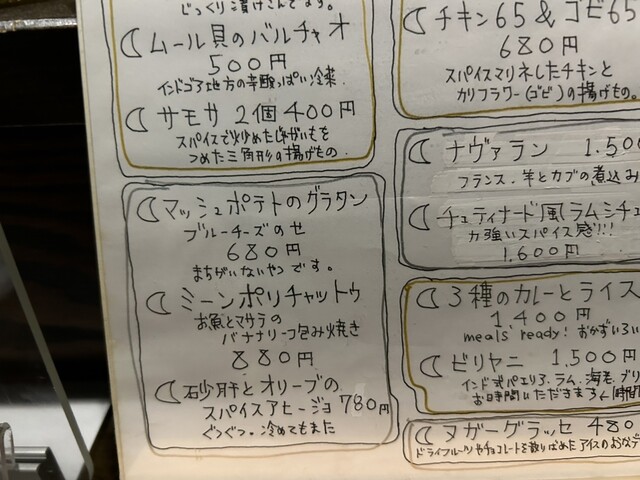 じっくり漬けこんでます。
ムール貝のバルチャオ
500円
インドゴア地方の辛酸っぱい冷菜
サモサ 2個 400円
スパイスで炒めたじゃがいもを
つめた三角形の揚げもの
マッシュポテトのグラタン
ブルーチーズのせ
680円
まちがいないやつです。
ミーンポリチャットゥ
お魚とマサラの
バナナリーフ包み焼き
880円
砂肝とオリーブの
スパイスアヒージョ 780円
ぐつぐつ。冷めてもまた
チキン65&ゴビ65
680円
スパイスマリネしたチキンと
カリフラワー(ゴビ)の揚げもの。
ナヴァラン 1.500
フランス.羊とカブの煮込み
チェティナード風ラムシチュ
力強いスパイス感!!!
1,600円
3種のカレーとライス
1400円
meals ready! おかずいろい
ビリヤニ 1,500円
インド式パエリア.ラム、海老、ブリ
お時間いただきます
ヌガーグラッセ 480
ドライフルーツやチョコレートを散りばめたアイスのおなデ